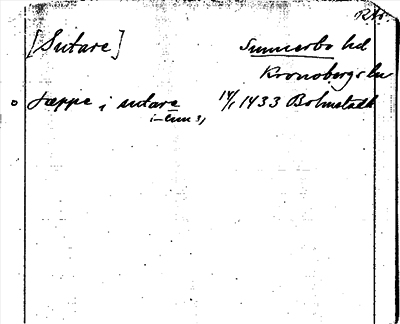 RAp.
[Sutare] Sunnerbo hd
Kronobergs län
o Jæppe i sutare 14/1 1433 Bolmstadh